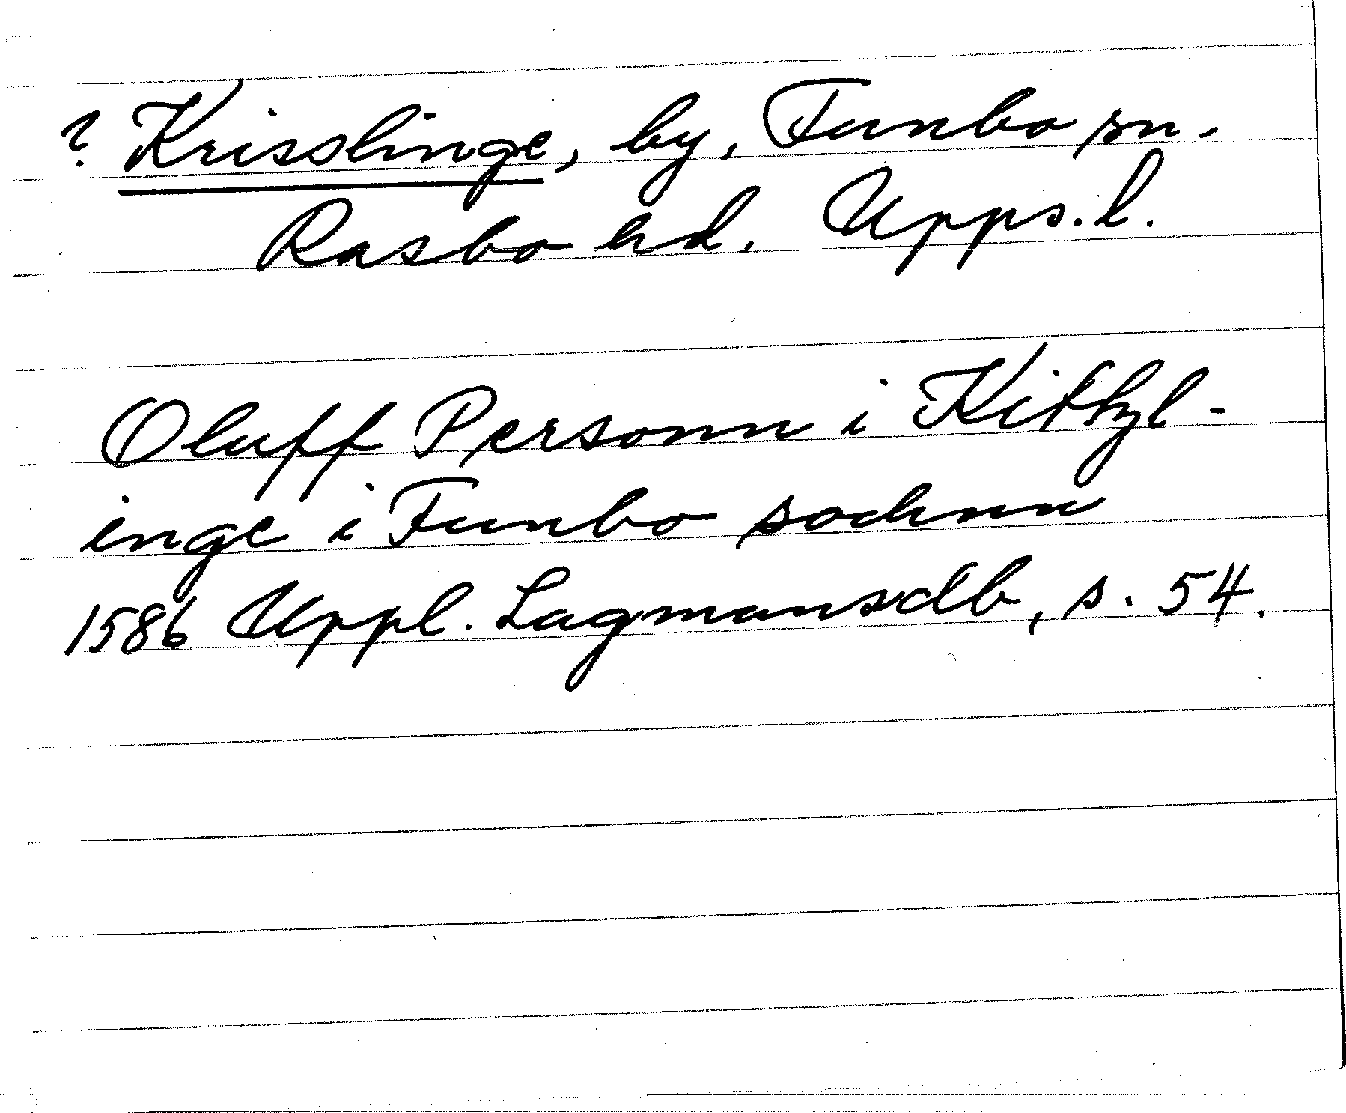 ? Krisslinge, by, Funbo sn.
Rasbo hd. Upps. l.
Oluff Personn i Kittzl-
inge i Funbo sochnn
1586 Uppl. Lagmansdb, s. 54.